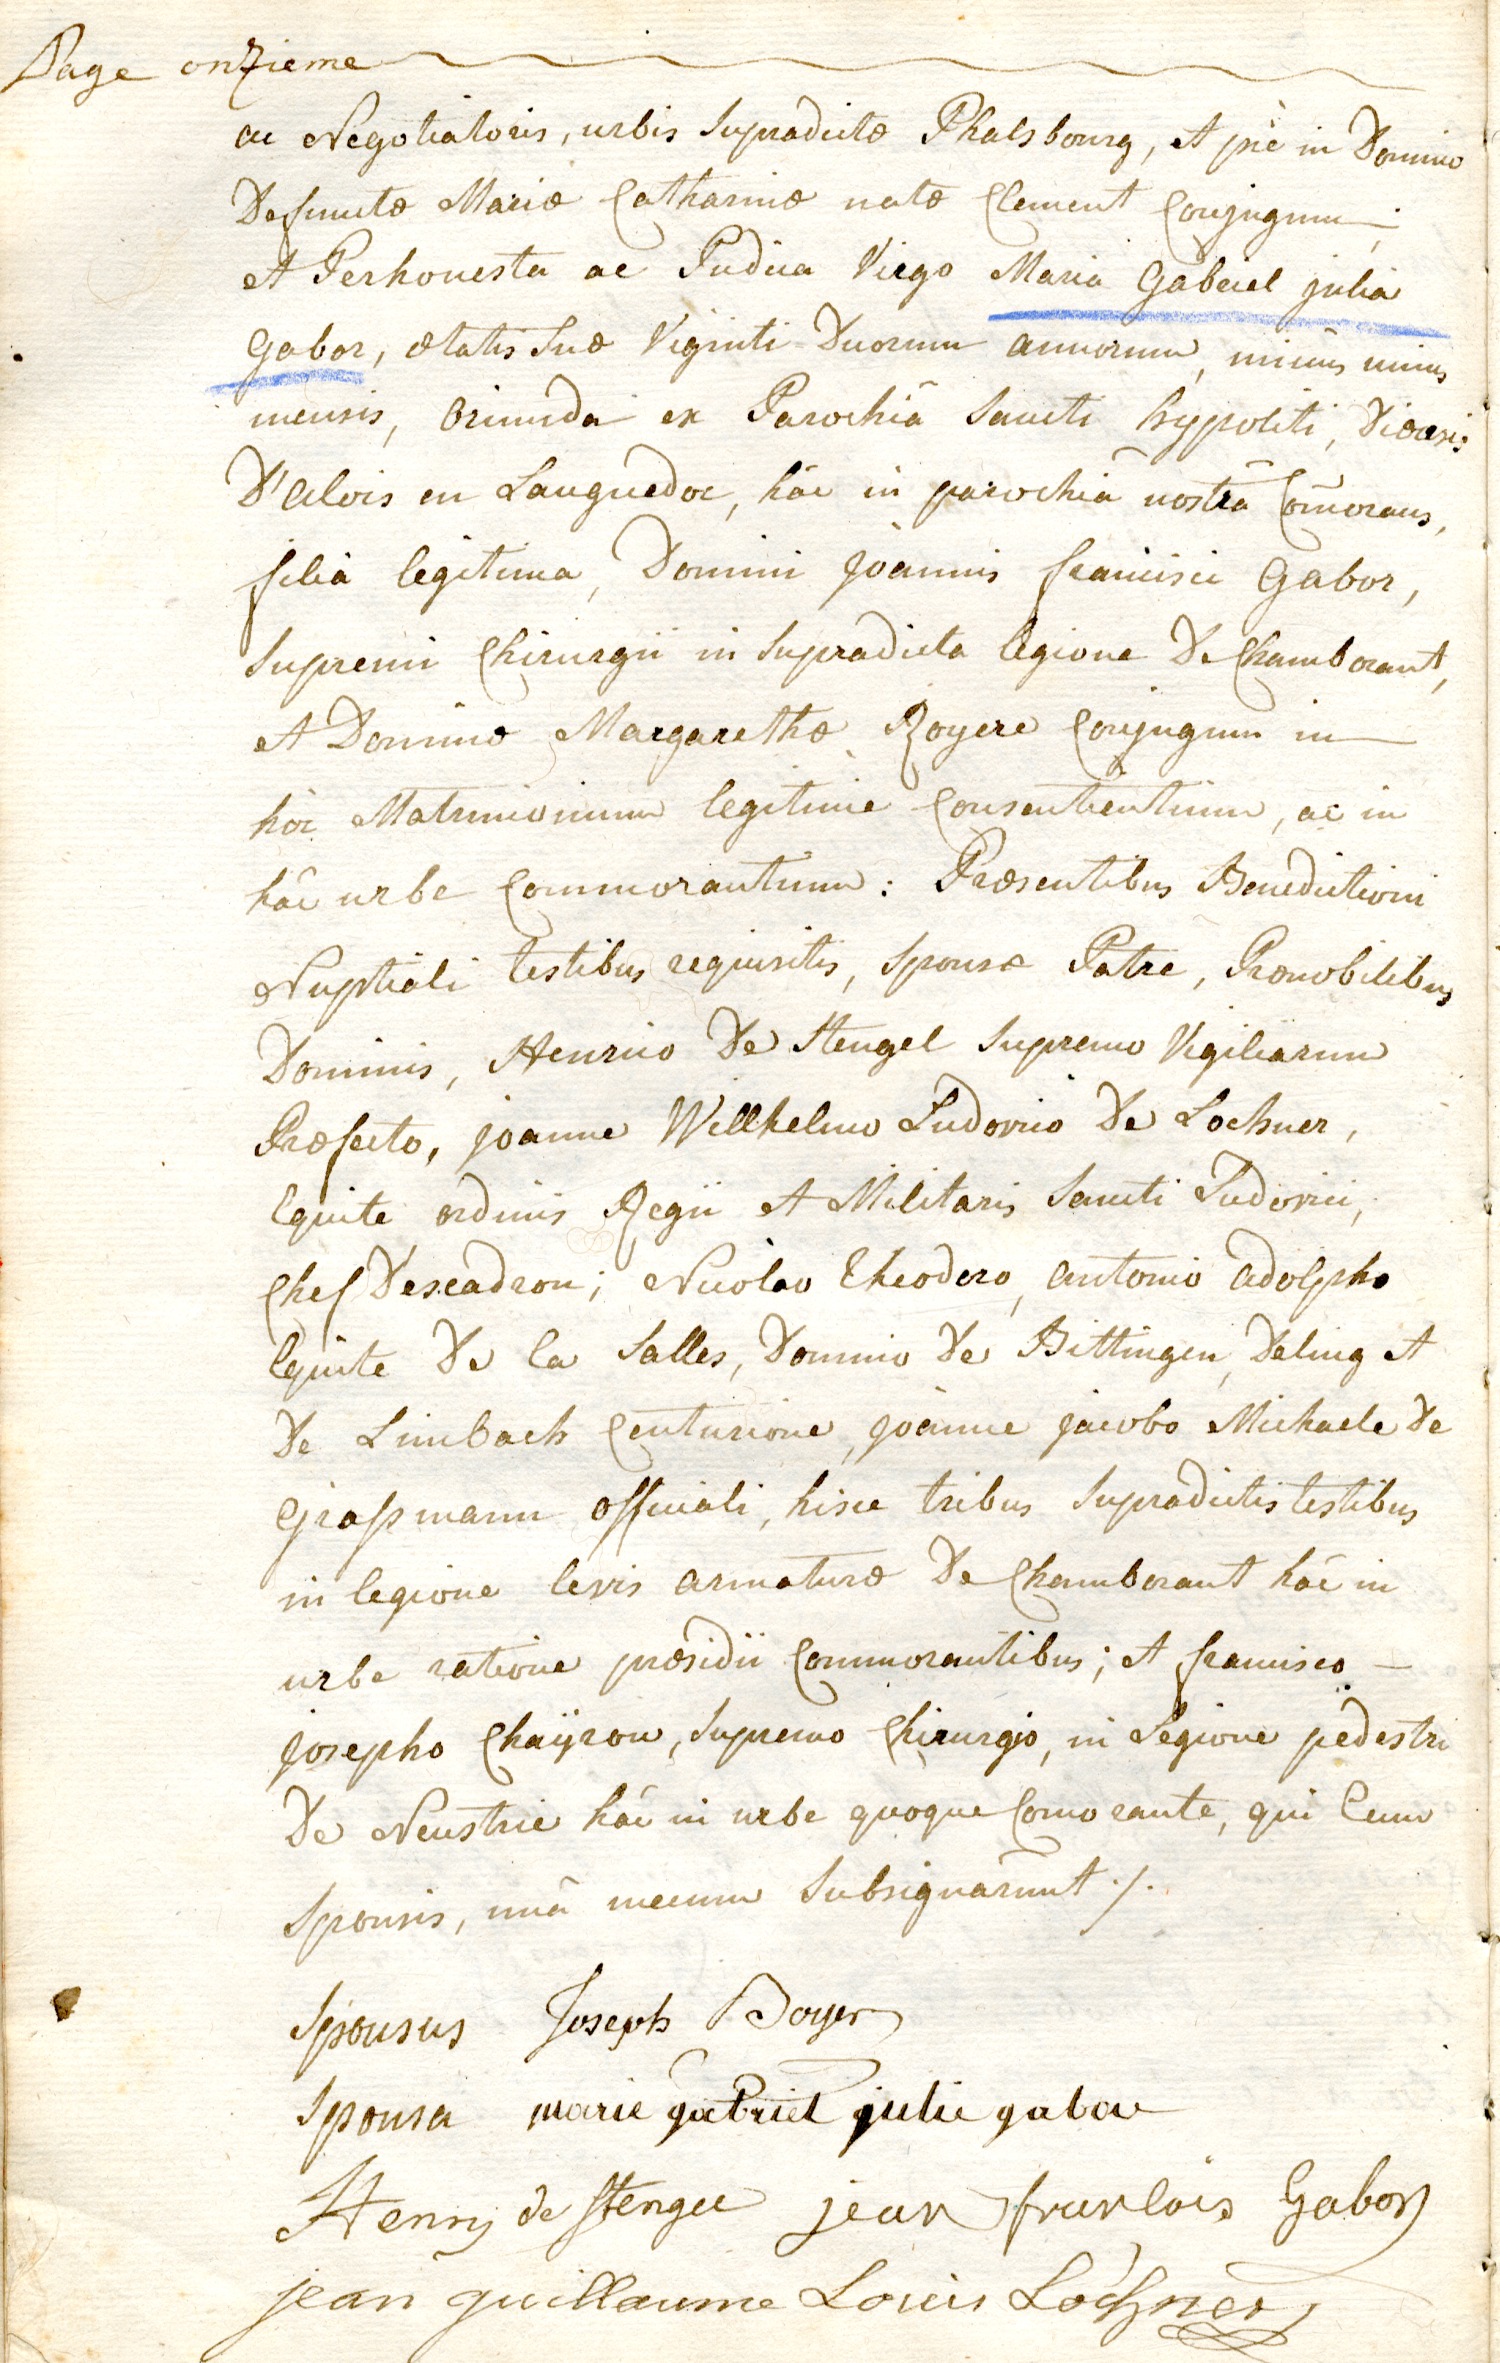 Page onzieme
ac Negotiatoris, urbis supradictæ Phalsbourg, et piè in Domino
Defunctæ Mariæ Catharinæ natæ Clement Conjugum;
et Perhonesta ac Pudica Virgo Maria Gabriel julia
Gabor, ætatis suæ Viginti Duorum annorum, minùs unius
mensis, oriunda ex Parochiâ Sancti hyppoliti, Diœcesis
D'alois en Languedoc, hâc in parochiâ nostrâ Com̄orans,
filia legitima, Domini joannis francisci Gabor,
supremi Chirurgii in supradicta legione De Chamborant,
et Dominæ Margarethæ Royere Conjugum in
hôc Matrimonium legitimè Consentientium, ac in
hâc urbe Commorantium: Præsentibus Benedictioni
Nuptiali testibus requisitis, sponsæ Patre, Prænobilibus
Dominis, Henrico De Stengel supremo Vigiliarum
Præfecto, joanne Willhelmo Ludovico De Lochner,
Equite ordinis Regii et Militaris Sancti Ludovici,
Chef Descadron; Nicolao Theodoro, antonio adolpho
Equite De la Salles, Domino De Bittingen, Deling et
De Limbach Centurione, joanne jacobo Michaele De
Graßmann officiali, hisce tribus supradictis testibus
in legione levis armaturæ De Chamborant hâc in
urbe ratione præsidii Commorantibus; et francisco
josepho Chaÿrou, supremo Chirurgo, in Legione pedestri
De Neustrie hâc in urbe quoque Comorante, qui Cum
sponsis, unâ mecum subsignarunt ./.
Sponsus Joseph Boyer
Sponsa marie gabriel julie gabor
Henry de Stengel jean franSois Gabor
jean guillaume Louis Lochner